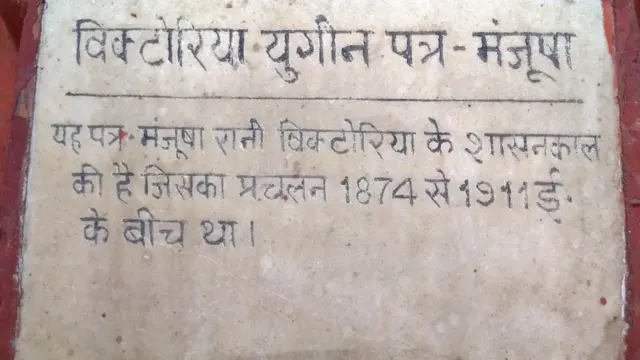 विक्टोरिया युगीन पत्र - मंजूषा
यह पत्र - मंजूषा रानी विक्टोरिया के शासनकाल
की है जिसका प्रचलन 1874 से 1911 ई.
के बीच था।